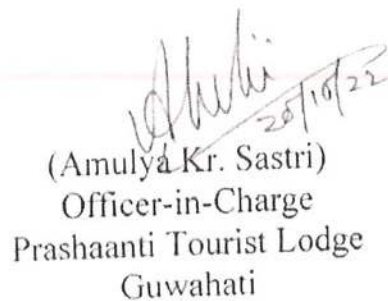 20/10/22
(Amulya Kr. Sastri)
Officer-in-Charge
Prashaanti Tourist Lodge
Guwahati